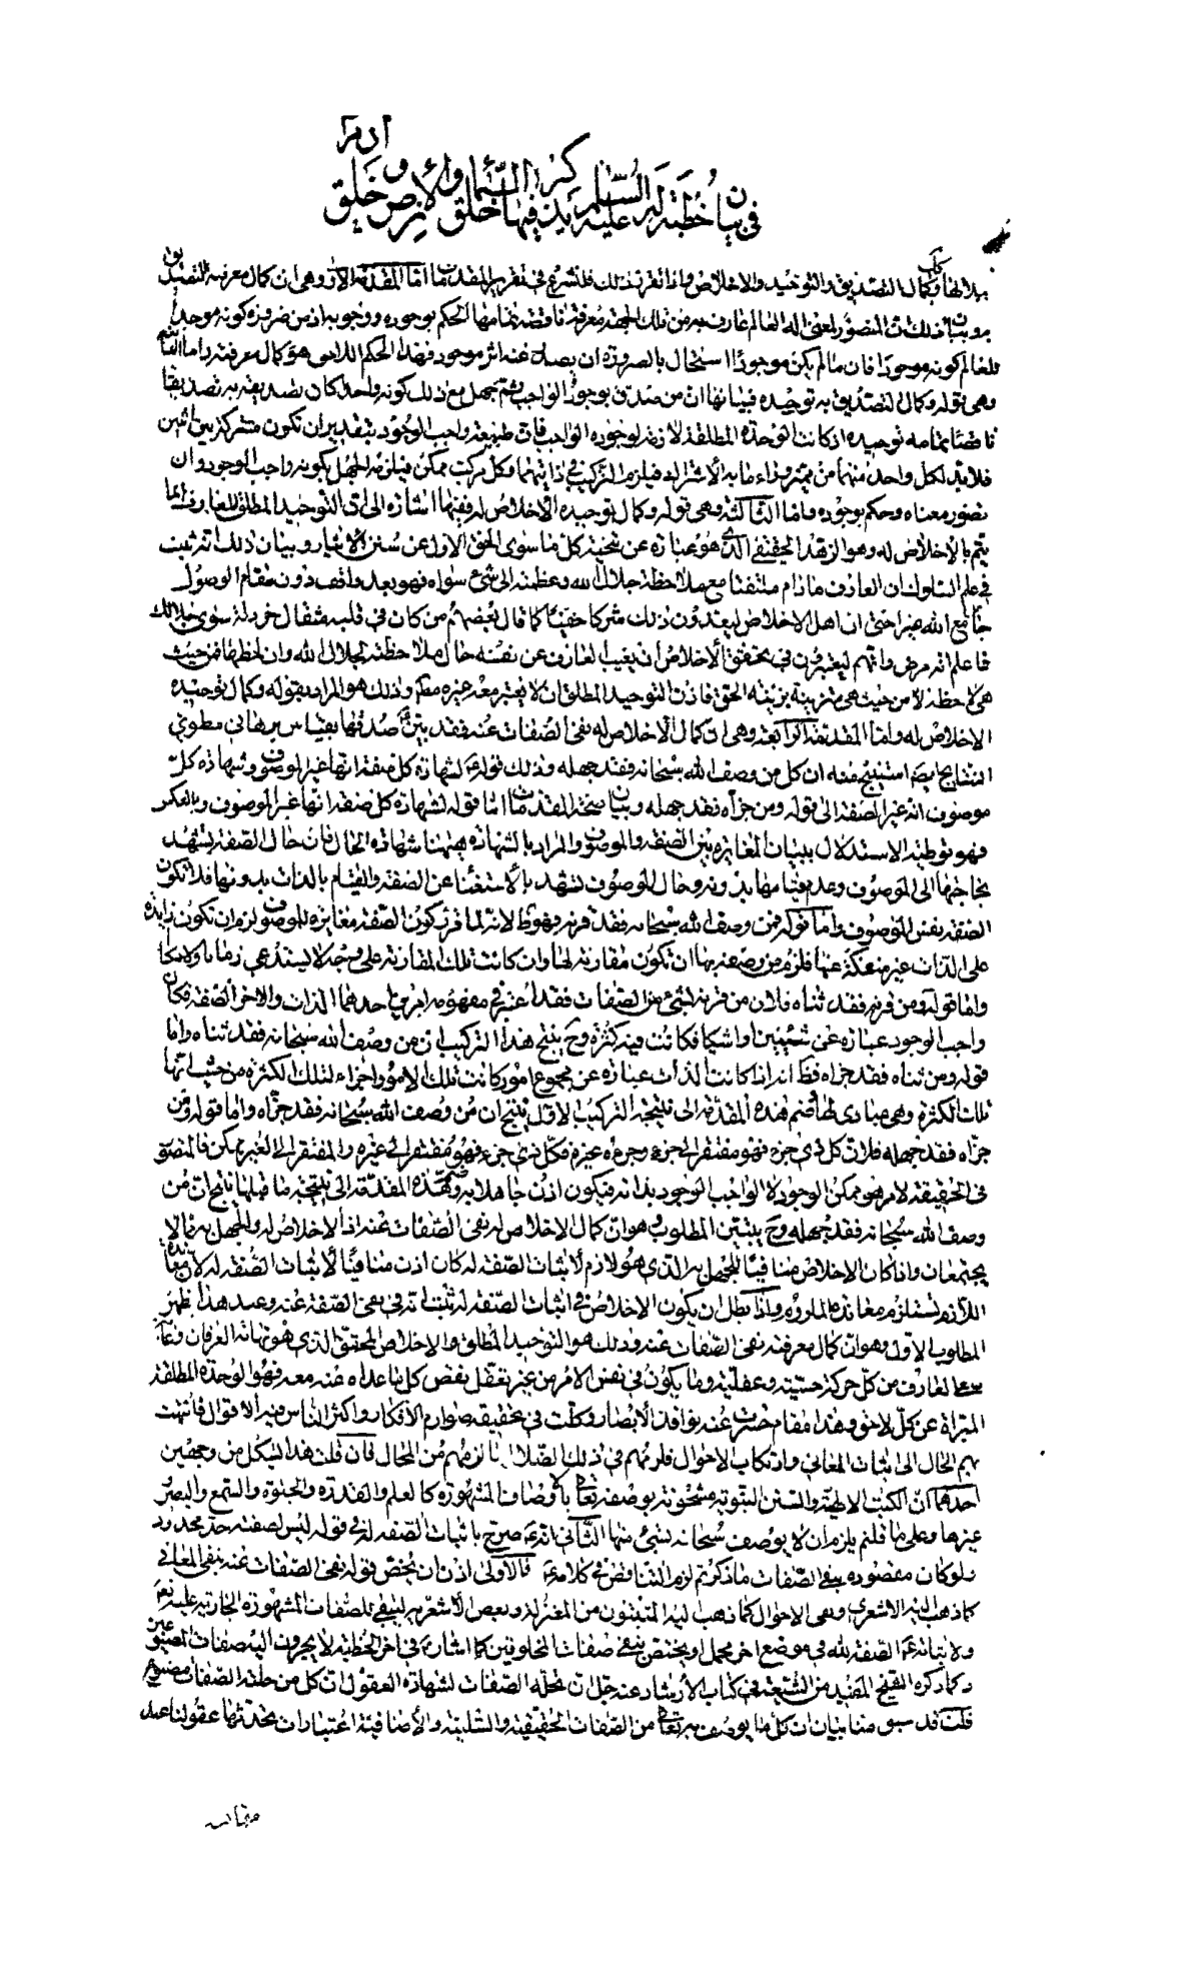 في بيان خطبة له عليه السلام يذكر فيها خلق السماء والأرض وخلق آدم
به وانها وكمال التصديق والتوحيد والاخلاص واذا تقرر ذلك فلنشرع في تقرير المقدمات اما المقدمة الاولى وهي ان كمال معرفته التصديق
به وبيان ذلك ان المتصور لمعنى اله العالم عارف به من تلك الجهة معرفة ناقصة تمامها الحكم بوجوده ووجوبه اذ من ضرورة كونه موجدا
للعالم كونه موجودا فان ما لم يكن موجودا استحال بالضرورة ان يصدر عنه اثر موجود فهذا الحكم اللاحق هو كمال معرفته واما الثانية
وهي قوله وكمال التصديق به توحيده فبيانها ان من صدق بوجود الواجب ثم جهل مع ذلك كونه واحدا كان تصديقه به تصديقا
ناقصا تمامه توحيده اذ كانت الوحدة المطلقة لازمة لوجوده الواجب فان طبيعة واجب الوجود بتقدير ان تكون مشتركة بين اثنين
فلابد لكل واحد منهما من مميز وراء ما به الاشتراك فيلزم التركيب في ذاتيهما وكل مركب ممكن فيلزمه الجهل بكونه واجب الوجود وان
تصور معناه وحكم بوجوده واما الثالثة وهي قوله وكمال توحيده الاخلاص له ففيها اشارة الى ان التوحيد المطلق للعارف انما
يتم بالاخلاص له وهو الزهد الحقيقي الذي هو عبارة عن تنحية كل ما سوى الحق الاول عن سنن الايثار وبيان ذلك انه ثبت
في علم السلوك ان العارف ما دام ملتفتا مع ملاحظة جلال الله وعظمته الى شئ سواه فهو بعد واقف دون مقام الوصول
جاعل مع الله غيرا حتى ان اهل الاخلاص ليعدون ذلك شركا خفيا كما قال بعضهم من كان في قلبه مثقال خردلة سوى جلالك
فاعلم انه مرض وانهم ليعتبرون في تحقق الاخلاص ان يغيب العارف عن نفسه حال ملاحظته لجلال الله وان لحظها فمن حيث
هي لاحظة لا من حيث هي متزينة بزينة الحق فاذن التوحيد المطلق ان لا يعتبر معه غيره مطلقا وذلك هو المراد بقوله وكمال توحيده
الاخلاص له واما المقدمة الرابعة وهي ان كمال الاخلاص له نفى الصفات عنه فقد بين صدقها بقياس برهاني مطوي
النتايج ايضا استنتج منه ان كل من وصف الله سبحانه فقد جهله وذلك قوله لشهادة كل صفة انها غير الموصوف وشهادة كل
موصوف انه غير الصفة الى قوله ومن جزاه فقد جهله وبيان صحة المقدمات اما قوله لشهادة كل صفة انها غير الموصوف وبالعكس
فهو توطية الاستدلال ببيان المغايرة بين الصفة والموصوف والمراد بالشهادة ههنا شهادة الحال فان حال الصفة تشهد
بحاجتها الى الموصوف وعدم قيامها بدونه وحال الموصوف تشهد بالاستغناء عن الصفة والقيام بالذات بدونها فلا تكون
الصفة نفس الموصوف واما قوله فمن وصف الله سبحانه فقد قرنه فهو ظ لانه لما قرر كون الصفة مغايرة للموصوف لزم ان تكون زايدة
على الذات غير منفكة عنها فلزم من وصفه بها ان تكون مقارنة لها وان كانت تلك المقارنة على وجه لا يستدعي زمانا ولا مكانا
واما قوله ومن قرنه فقد ثناه فلان من قرنه بشئ من الصفات فقد اعتبر في مفهومه امرين احدهما الذات والاخر الصفة فكان
واجب الوجود عبارة عن شيئين او اشياء فكانت فيه كثرة وح ينتج هذا التركيب ان من وصف الله سبحانه فقد ثناه واما
قوله ومن ثناه فقد جزاه فظ انه اذا كانت الذات عبارة عن مجموع امور كانت تلك الامور اجزاء لتلك الكثرة من حيث انها
تلك الكثرة وهي مبادي لها وضم هذه المقدمة الى نتيجة التركيب الاول ينتج ان من وصف الله سبحانه فقد جزاه واما قوله ومن
جزاه فقد جهله فلان كل ذي جزء فهو مفتقر الى جزئه وجزءه غيره فكل ذي جزء فهو مفتقر الى غيره والمفتقر الى الغير ممكن فالمتصور
في الحقيقة لامر هو ممكن الوجود لا الواجب الوجود بذاته فيكون اذن جاهلا به وضم هذه المقدمة الى نتيجة ما قبلها ينتج ان من
وصف الله سبحانه فقد جهله وح يتبين المطلوب وهو ان كمال الاخلاص له نفى الصفات عنه اذ الاخلاص له والجهل به مما لا
يجتمعان واذا كان الاخلاص منافيا للجهل به الذي هو لازم لاثبات الصفة له كان اذن منافيا لاثبات الصفة له لان معاندة
اللازم تستلزم معاندة الملزوم واذا بطل ان يكون الاخلاص في اثبات الصفة له ثبت انه في نفى الصفة عنه وعند هذا يظهر
المطلوب الاول وهو ان كمال معرفته نفى الصفات عنه وذلك هو التوحيد المطلق والاخلاص المحقق الذي هو نهاية العرفان وغاية
سعى العارف من كل حركة حسية وعقلية وما يكون في نفس الامر من غير تعقل نقص كل ما عداه عنه معه فهو الوحدة المطلقة
المبراة عن كل لاحق وهذا مقام حسرت عنه نوافذ الابصار وكلت في تحقيقه صوارم الافكار واكثر الناس فيه الاقوال فانتهت
بهم الحال الى اثبات المعاني وارتكاب الاحوال فلزمهم في ذلك الضلال ما لزمهم من المحال فان قلت هذا يشكل من وجهين
احدهما ان الكتب الالهية والسنن النبوية مشحونة بوصفه تعالى بالاوصاف المشهورة كالعلم والقدرة والحيوة والسمع والبصر
وغيرها وعلى ما قلتم يلزم ان لا يوصف سبحانه بشئ منها الثاني انه صرح باثبات الصفة له في قوله ليس لصفته حد محدود
ولو كان مقصوده بنفى الصفات ما ذكرتم لزم التناقض في كلامه فالاولى اذن ان يخص قوله نفى الصفات عنه بنفى المعاني
كما ذهب اليه الاشعري ونفى الاحوال كما ذهب اليه المثبتون من المعتزلة وبعض الاشعرية ليبقى للصفات المشهورة الجارية عليه تعالى
ولاثباته الصفة لله في موضع اخر محمل او يختص بنفى صفات المخلوقين كما اشار في آخر الخطبة لا يجرون اليه صفات المصنوعين
وكما ذكره الشيخ المفيد من الشيعة في كتاب الارشاد عنه جل ان تحله الصفات لشهادة العقول ان كل من حلته الصفات مصنوع
قلت قد سبق منا بيان ان كل ما يوصف به تعالى من الصفات الحقيقية والسلبية والاضافية اعتبارات يحدثها عقولنا عند
مقايسة